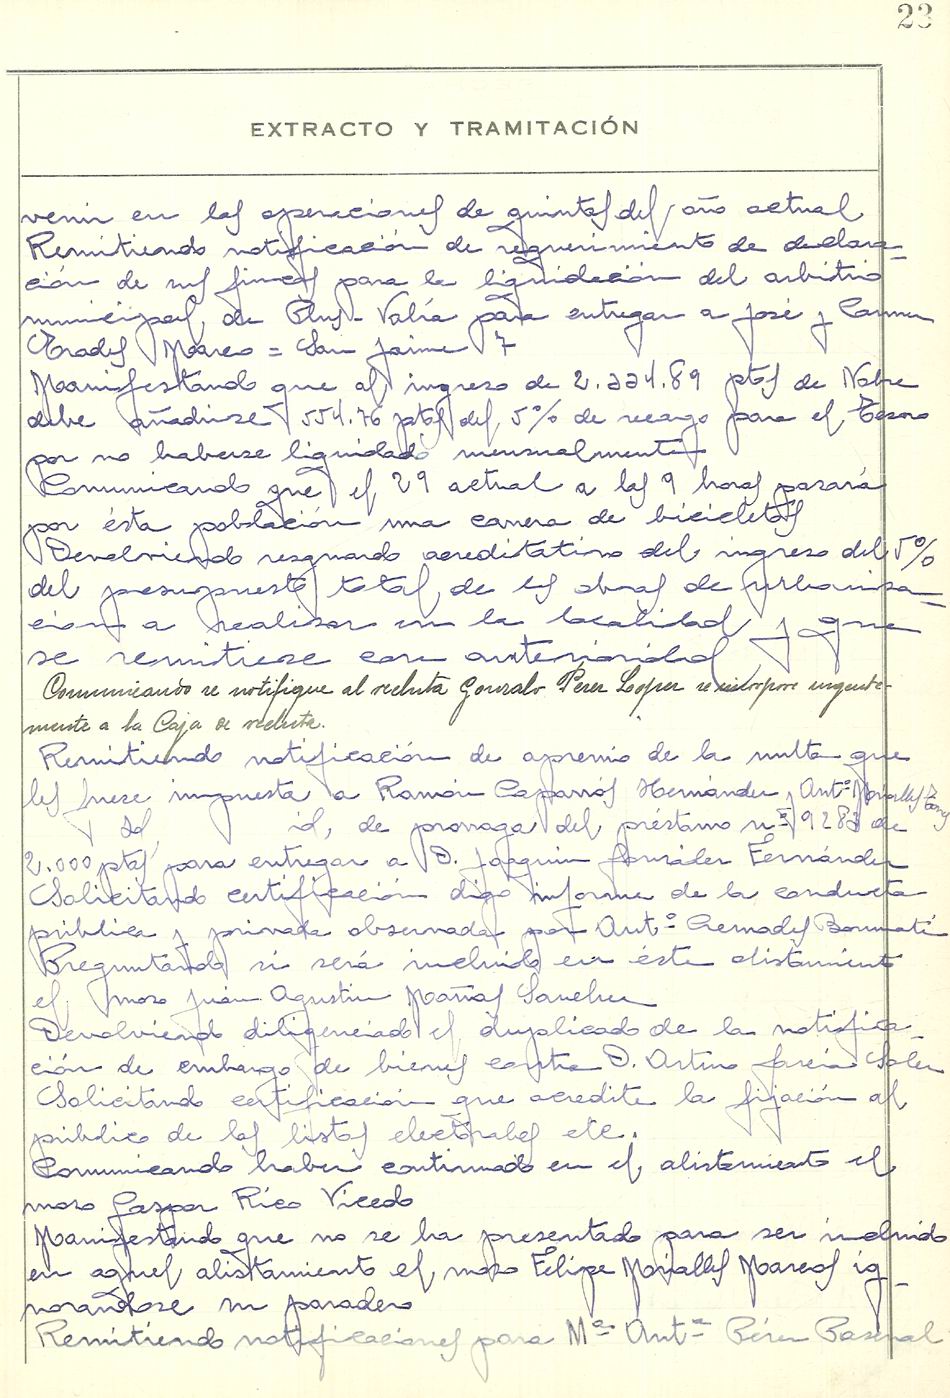 23
EXTRACTO Y TRAMITACIÓN
venir en las operaciones de quintas del año actual
Remitiendo notificación de requerimiento de declara-
ción de sus fincas para la liquidación del arbitrio
municipal, de Plus-Valía para entregar a José y Carmen
Prades Marco = San Jaime 7
Manifestando que al ingreso de 2.224.89 ptas de Nbre
debe añadirse 554.76 ptas del 5% de recargo para el Tesoro
por no haberse liquidado mensualmente
Comunicando que el 29 actual a las 9 horas pasará
por ésta población una carrera de bicicletas
Devolviendo resguardo acreditativo del ingreso del 5%
del presupuesto total, de las obras de urbaniza-
ción a realizar en la localidad y que
se remitiese con anterioridad
Comunicando se notifique al recluta Gonzalo Pérez López se incorpore urgente-
mente a la Caja de recluta.
Remitiendo notificación de apremio de la multa que
les fuese impuesta a Ramón Caparrós Hernández y Antº
Id id, de prorroga del préstamo nº 9283 de
2.000 ptas para entregar a D. Joaquin González Fernández
Solicitando certificación digo informe de la conducta
pública y privada observada por Antº Cremades Bonmatí
Preguntando si será incluido en éste alistamiento
el mozo Juán Agustin Mañas Sanchez
Devolviendo diligenciado el duplicado de la notifica-
ción de embargo de bienes contra D. Arturo García Soler
Solicitando certificación que acredite la fijación al
público de las listas electorales etc.
Comunicando haber continuado en el alistamiento el
mozo Gaspar Rico Vicedo
Manifestando que no se ha presentado para ser incluido
en aquel alistamiento el mozo Felipe Mirallés Marcos ig-
norandose su paradero
Remitiendo notificaciones para Mª Antª Pérez Bascual